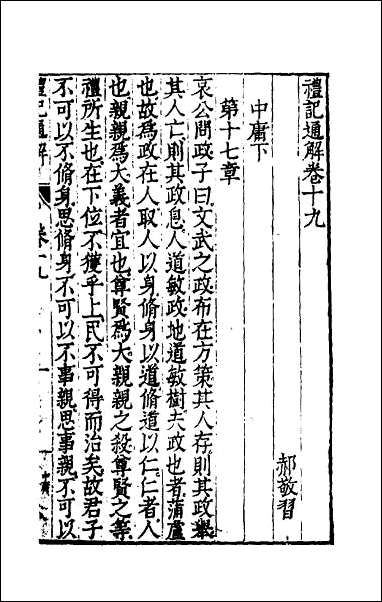 禮記通解卷十九
郝敬習
中庸下
第十七章
哀公問政子曰文武之政布在方策其人存則其政舉
其人亡則其政息人道敏政地道敏樹夫政也者蒲盧
也故爲政在人取人以身脩身以道脩道以仁仁者人
也親親爲大義者宜也尊賢爲大親親之殺尊賢之等
禮所生也在下位不獲乎上民不可得而治矣故君子
不可以不脩身思脩身不可以不事親思事親不可以
禮記通解
卷十九